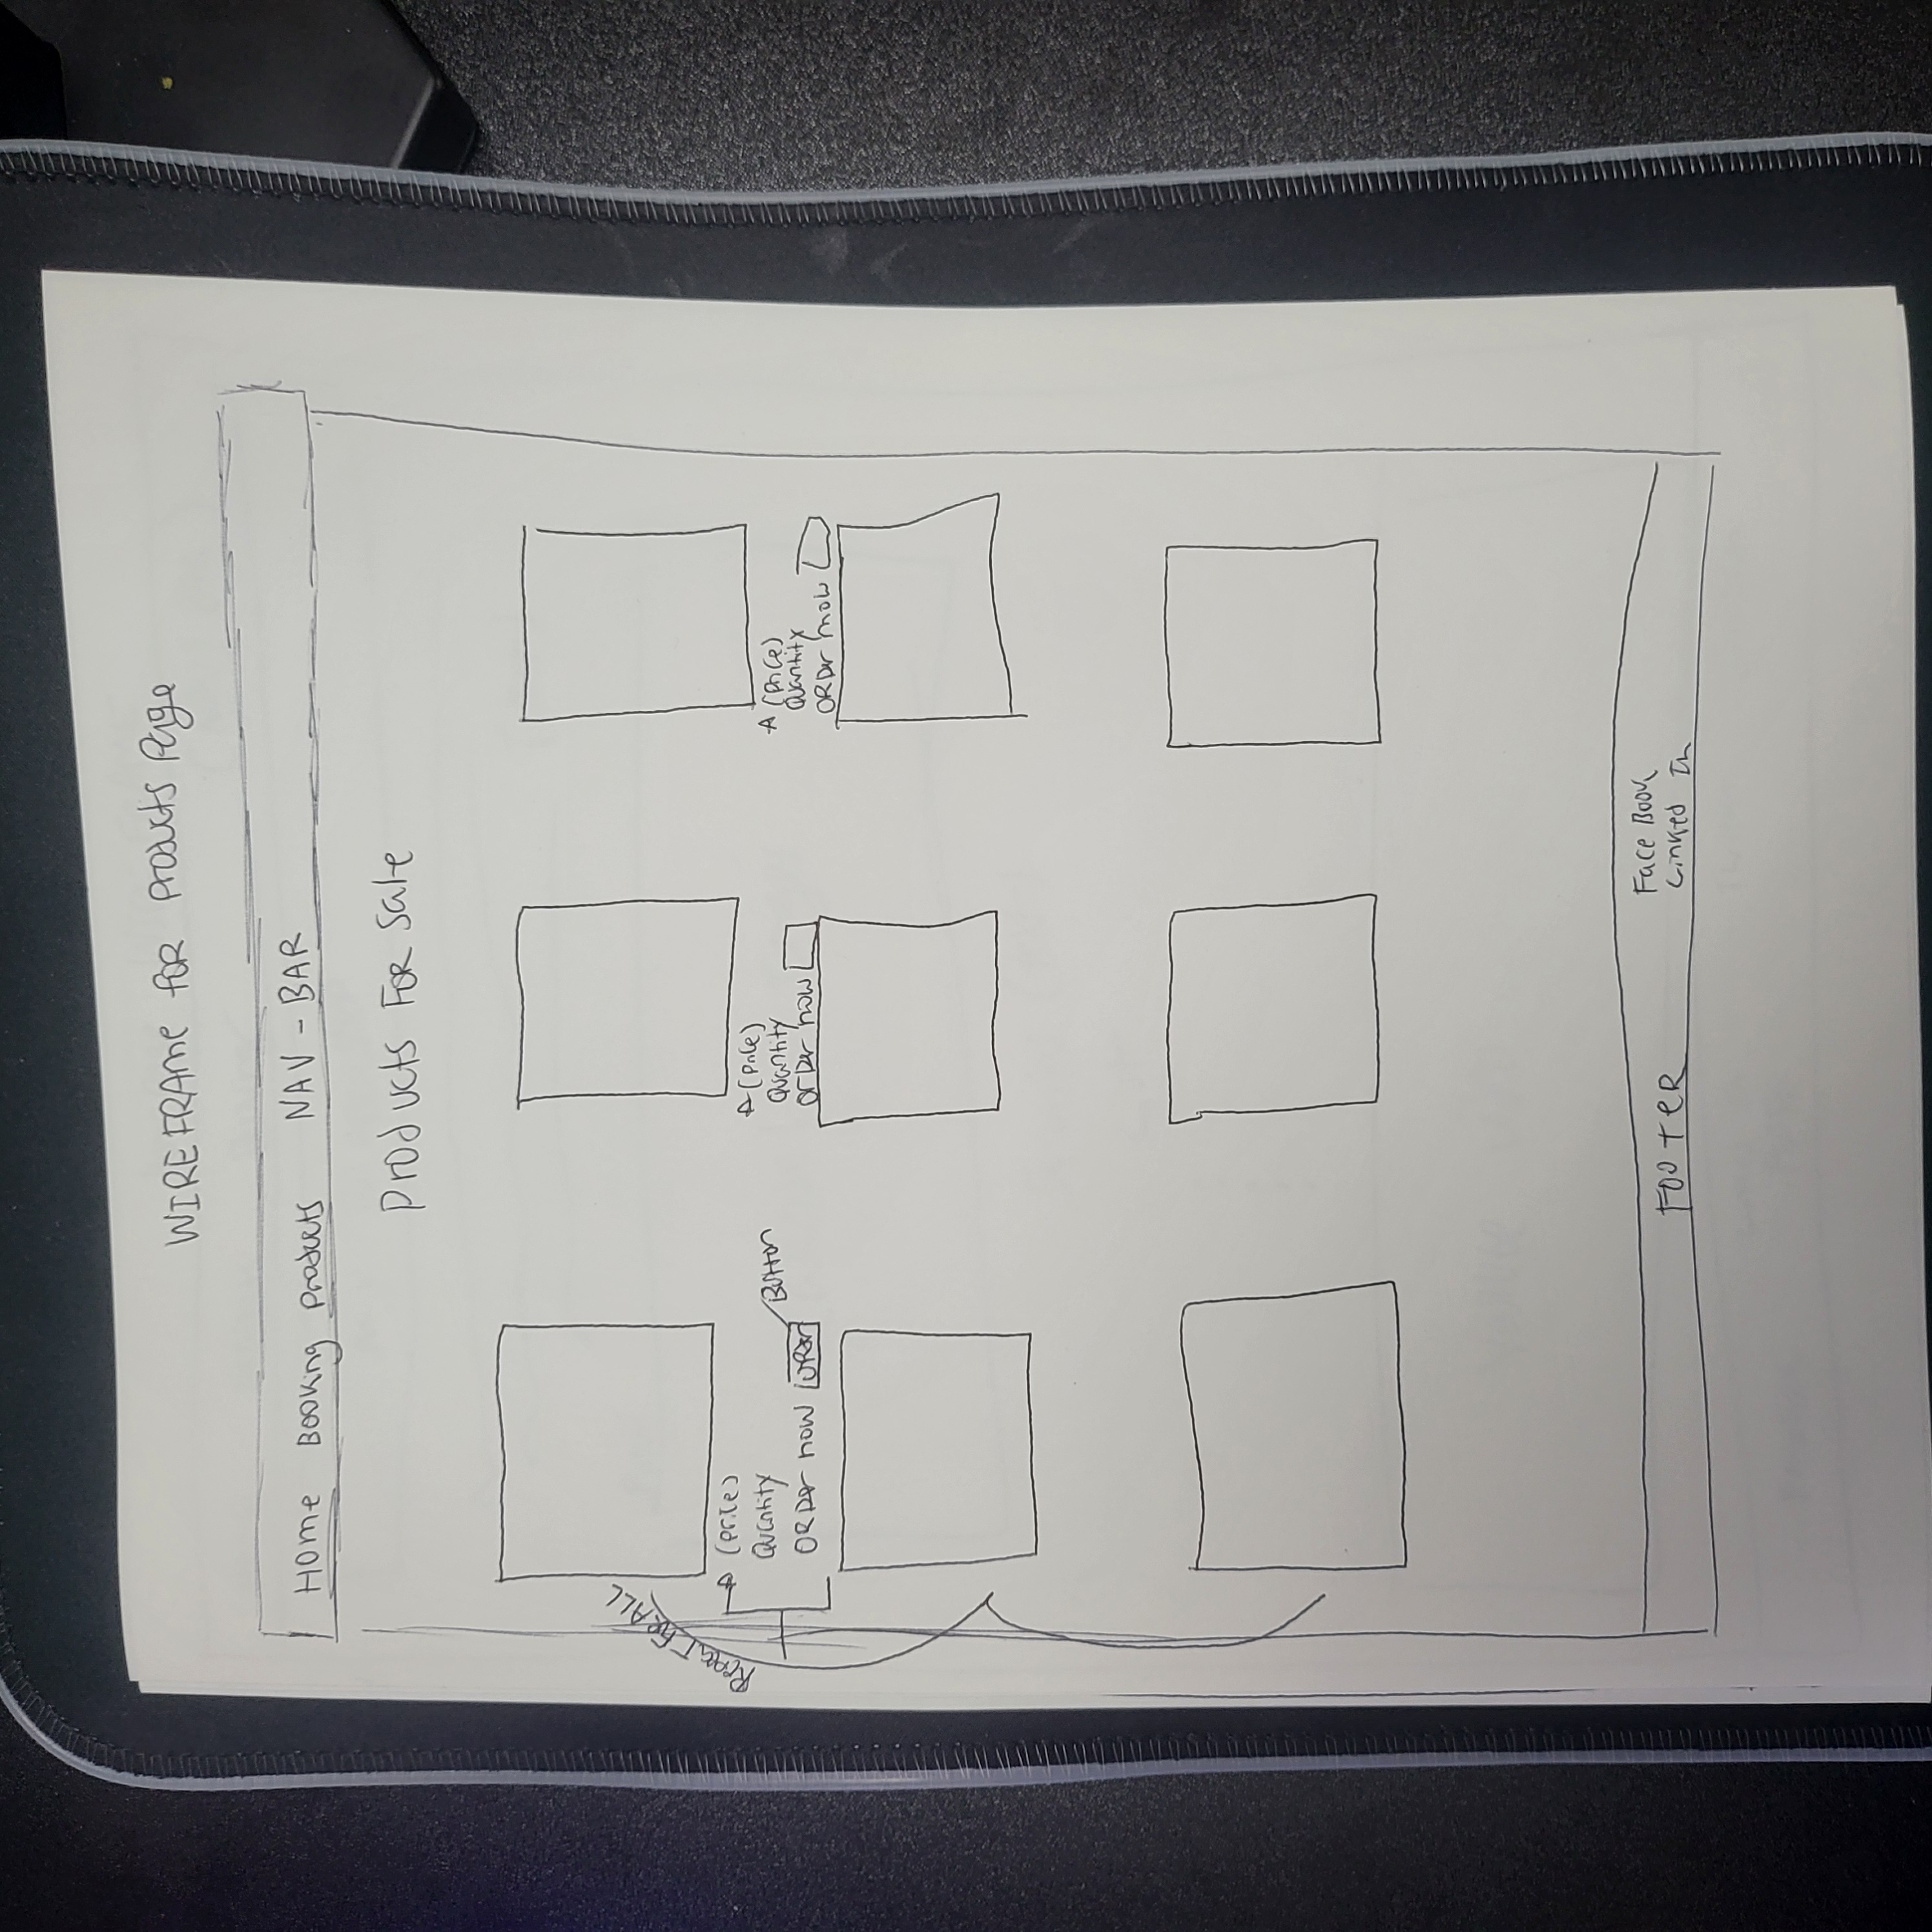 WIREFRAMe FOR Products Page
Home Booking Products NAV - BAR
Products FOR Sale
Repeat For ALL
(Price)
Quantity
ORDer now
Button
(Price)
Quantity
OrDer now
(Price)
Quantity
ORDer now
FOOTeR
Face Book
Linked In